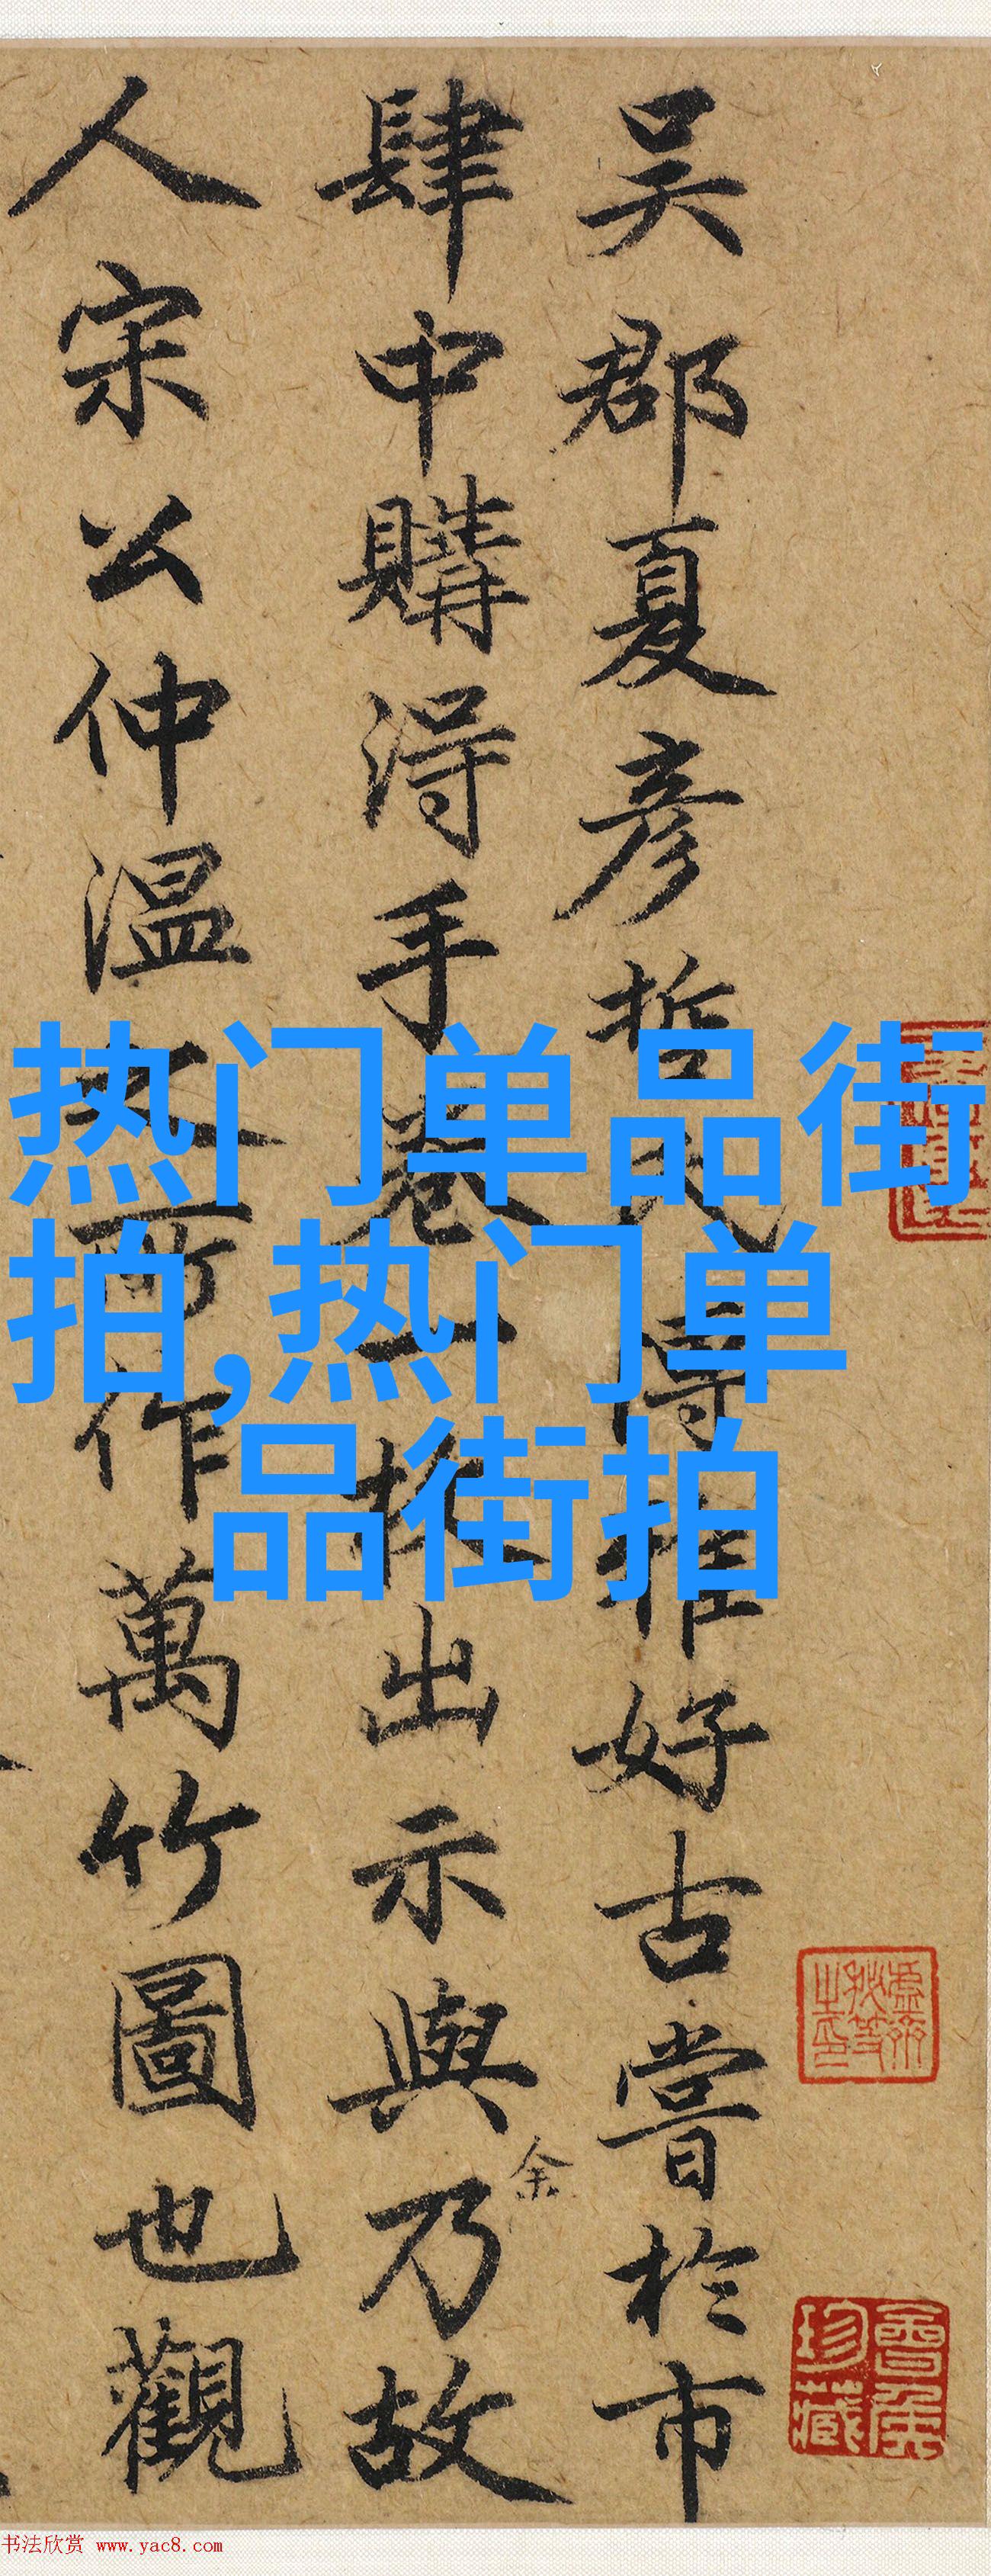 吴郡夏彦哲 博雅好古嘗於市
肆中購得手卷一 出示與乃故
余
人宋公仲温之所作萬竹圖也觀
热门单品街
拍,热门单
品街拍
珍藏
书法欣赏 www.yac8.com